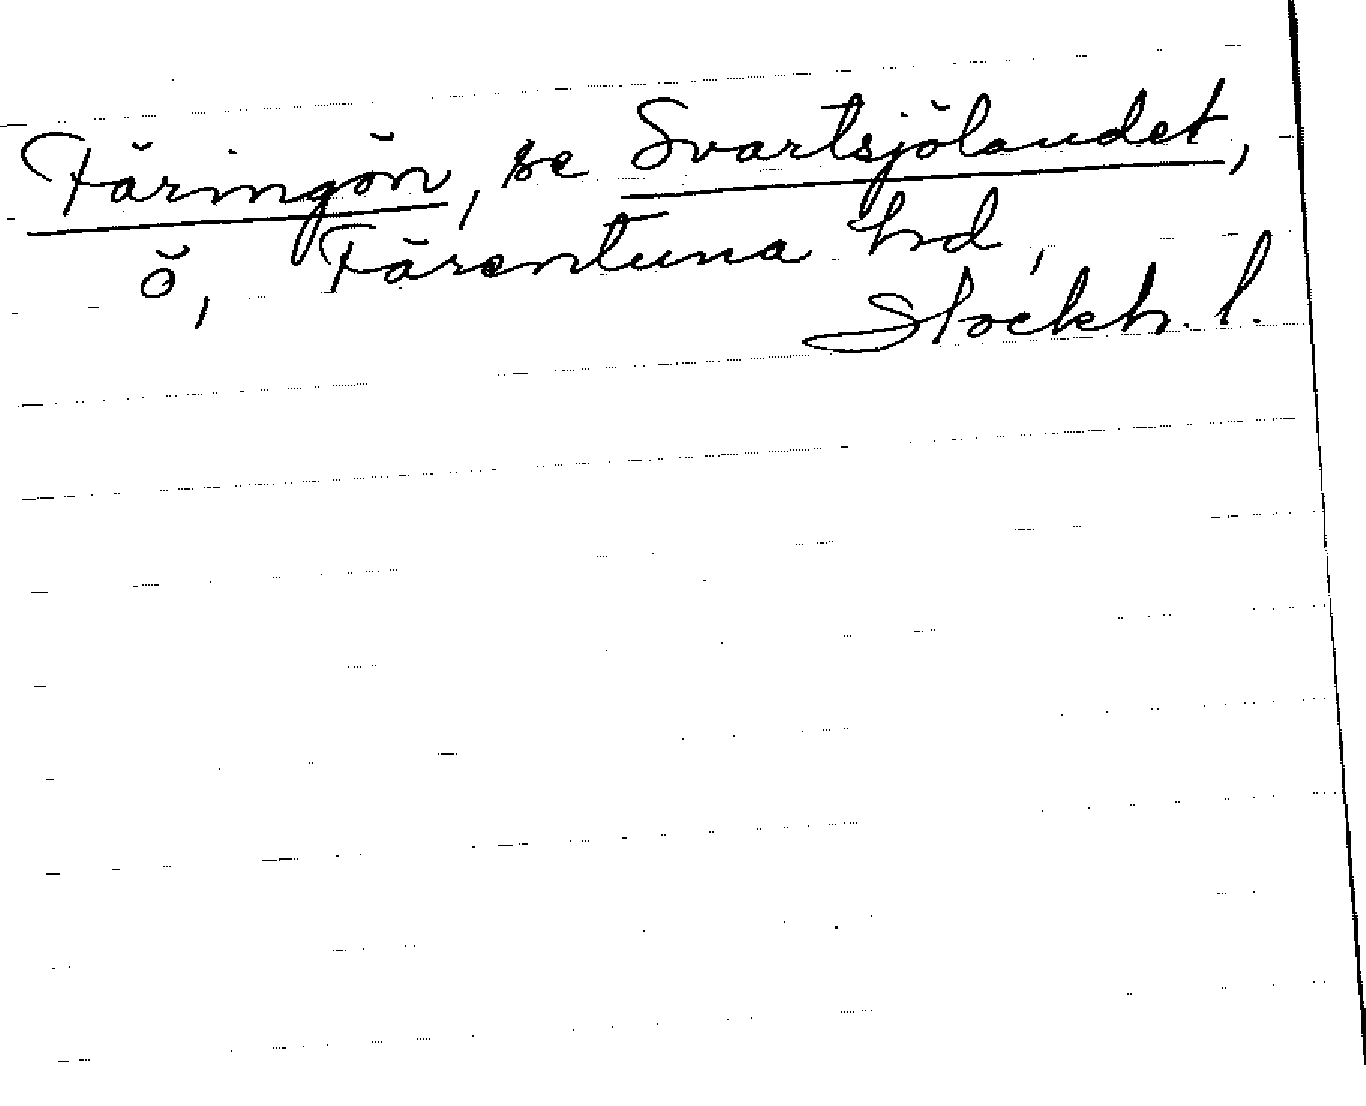 Färingön, se Svartsjölandet,
ö, Färentuna hd,
Stockh. l.